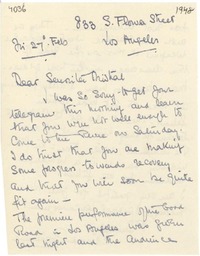 4036
1948
833 S. Flower Street
Los Angeles
Fri 27th Feb
Dear Senorita Mistral
I was so sorry to get your
telegram this morning and learn
that you were not well enough to
come to the on Saturday.
I do trust that you are making
some progress towards recovery
and that you will soon be quite
fit again –
The première performance of the Good
Road in Los Angeles was given
last night and the audience